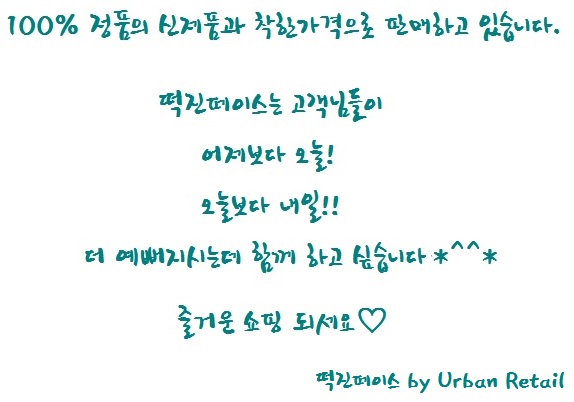 100% 정품의 신제품과 착한가격으로 판매하고 있습니다.
떡진떼이스는 고객님들이
어제보다 오늘!
오늘보다 내일!!
더 예뻐지시는데 함께 하고 싶습니다 *^^*
즐거운 쇼핑 되세요♡
떡진떼이스 by Urban Retail